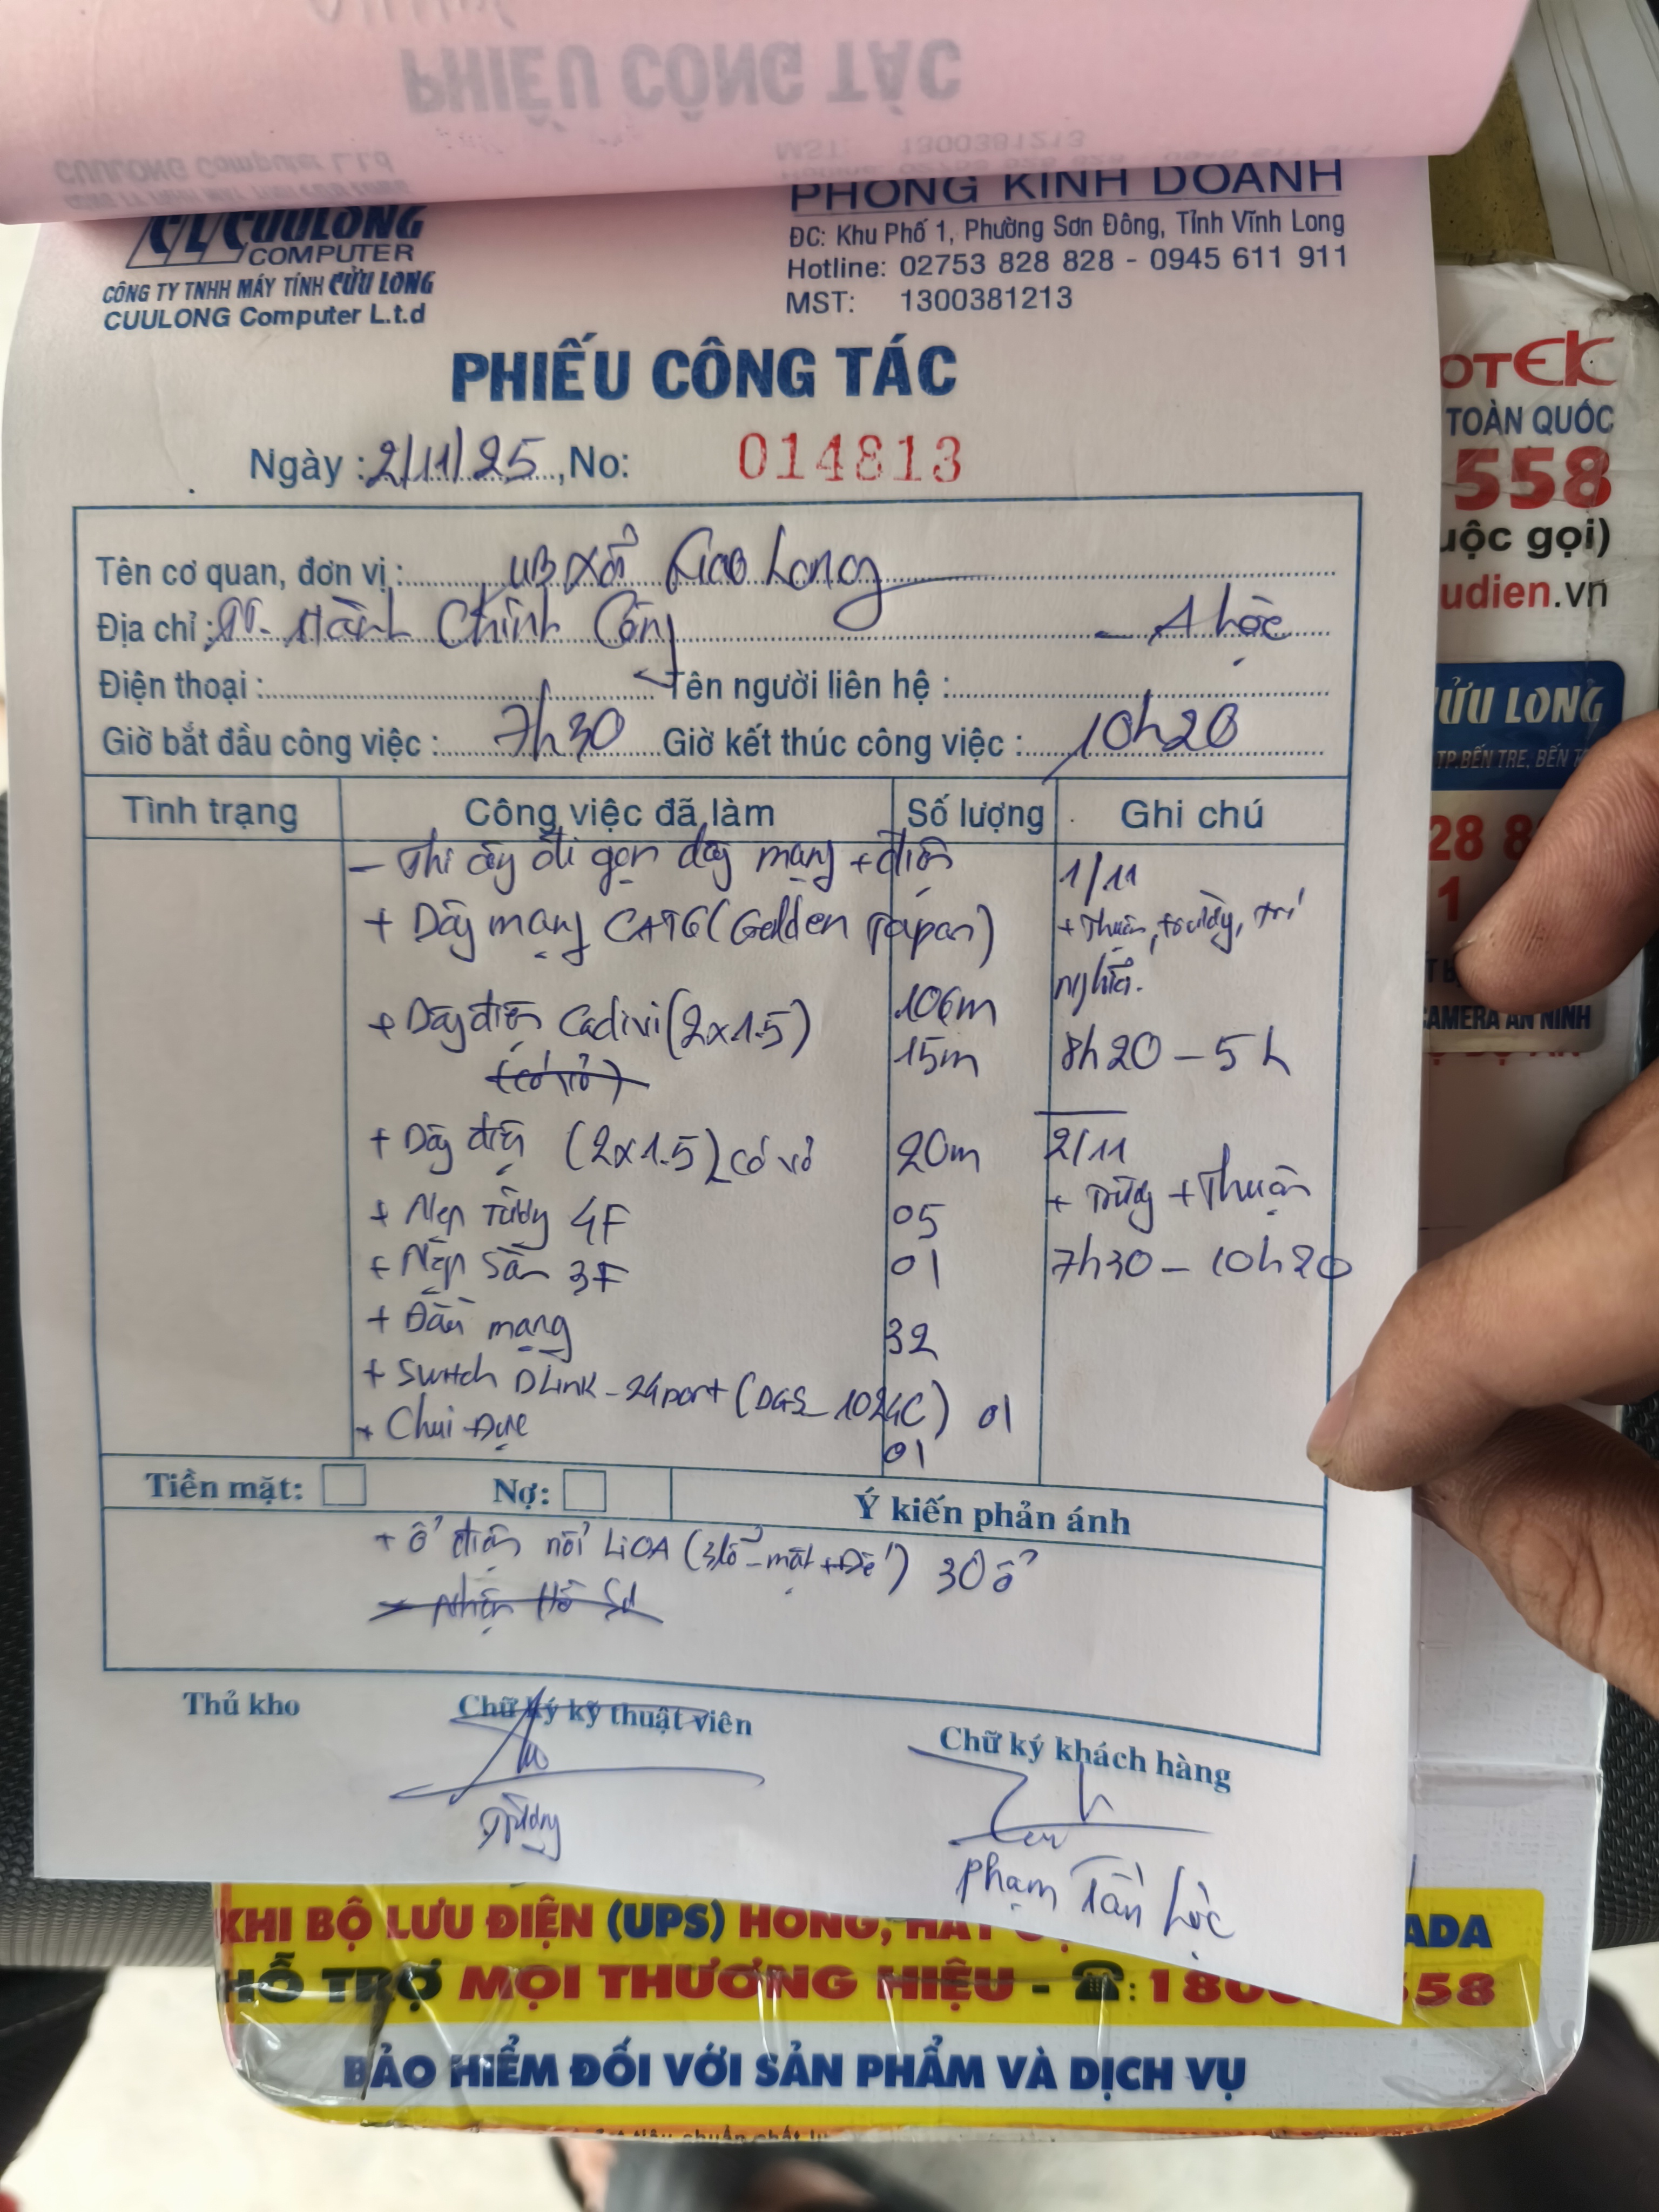 PHIẾU CÔNG TÁC
MST: 1300381213
CUULONG Computer L.t.d
CUULONG
COMPUTER
CÔNG TY TNHH MÁY TÍNH CỬU LONG
CUULONG Computer L.t.d
PHÒNG KINH DOANH
ĐC: Khu Phố 1, Phường Sơn Đông, Tỉnh Vĩnh Long
Hotline: 02753 828 828 - 0945 611 911
MST: 1300381213
PHIẾU CÔNG TÁC
Ngày : 2/11/25, No: 014813
Tên cơ quan, đơn vị : UB xã Giao Long
Địa chỉ : Hành Chính Công - A Lộc
Điện thoại : Tên người liên hệ :
Giờ bắt đầu công việc : 7h30 Giờ kết thúc công việc : 10h20
Tình trạng Công việc đã làm Số lượng Ghi chú
- Thi công đi gọn dây mạng + điện 1/11
+ Dây mạng CAT6 (Golden Japan) 106m + Thuận, trường, trí nghĩa.
+ Dây điện Cadivi (2x1.5) 15m 8h20 - 5h
(có vỏ)
+ Dây điện (2x1.5) có vỏ 20m 2/11
+ Nẹp Tường 4F 05 + Trường + Thuận
+ Nẹp Sàn 3F 01 7h30 - 10h20
+ Đầu mạng 32
+ Switch DLink - 24port (DGS_1024C) 01
+ Chui Đực 01
Tiền mặt: Nợ: Ý kiến phản ánh
+ ổ điện nối LiOA (3lỗ - mặt + Đế) 30 ổ
- Nhận Hồ Sơ
Thủ kho Chữ ký kỹ thuật viên Chữ ký khách hàng
Trường
Phạm Tấn Lộc
OTEK
TOÀN QUỐC
558
uộc gọi)
udien.vn
ỬU LONG
TP.BẾN TRE, BẾN
28 8
1
CAMERA AN NINH
KHI BỘ LƯU ĐIỆN (UPS) HỎNG, ADA
HỖ TRỢ MỌI THƯƠNG HIỆU - ☎: 180 558
BẢO HIỂM ĐỐI VỚI SẢN PHẨM VÀ DỊCH VỤ